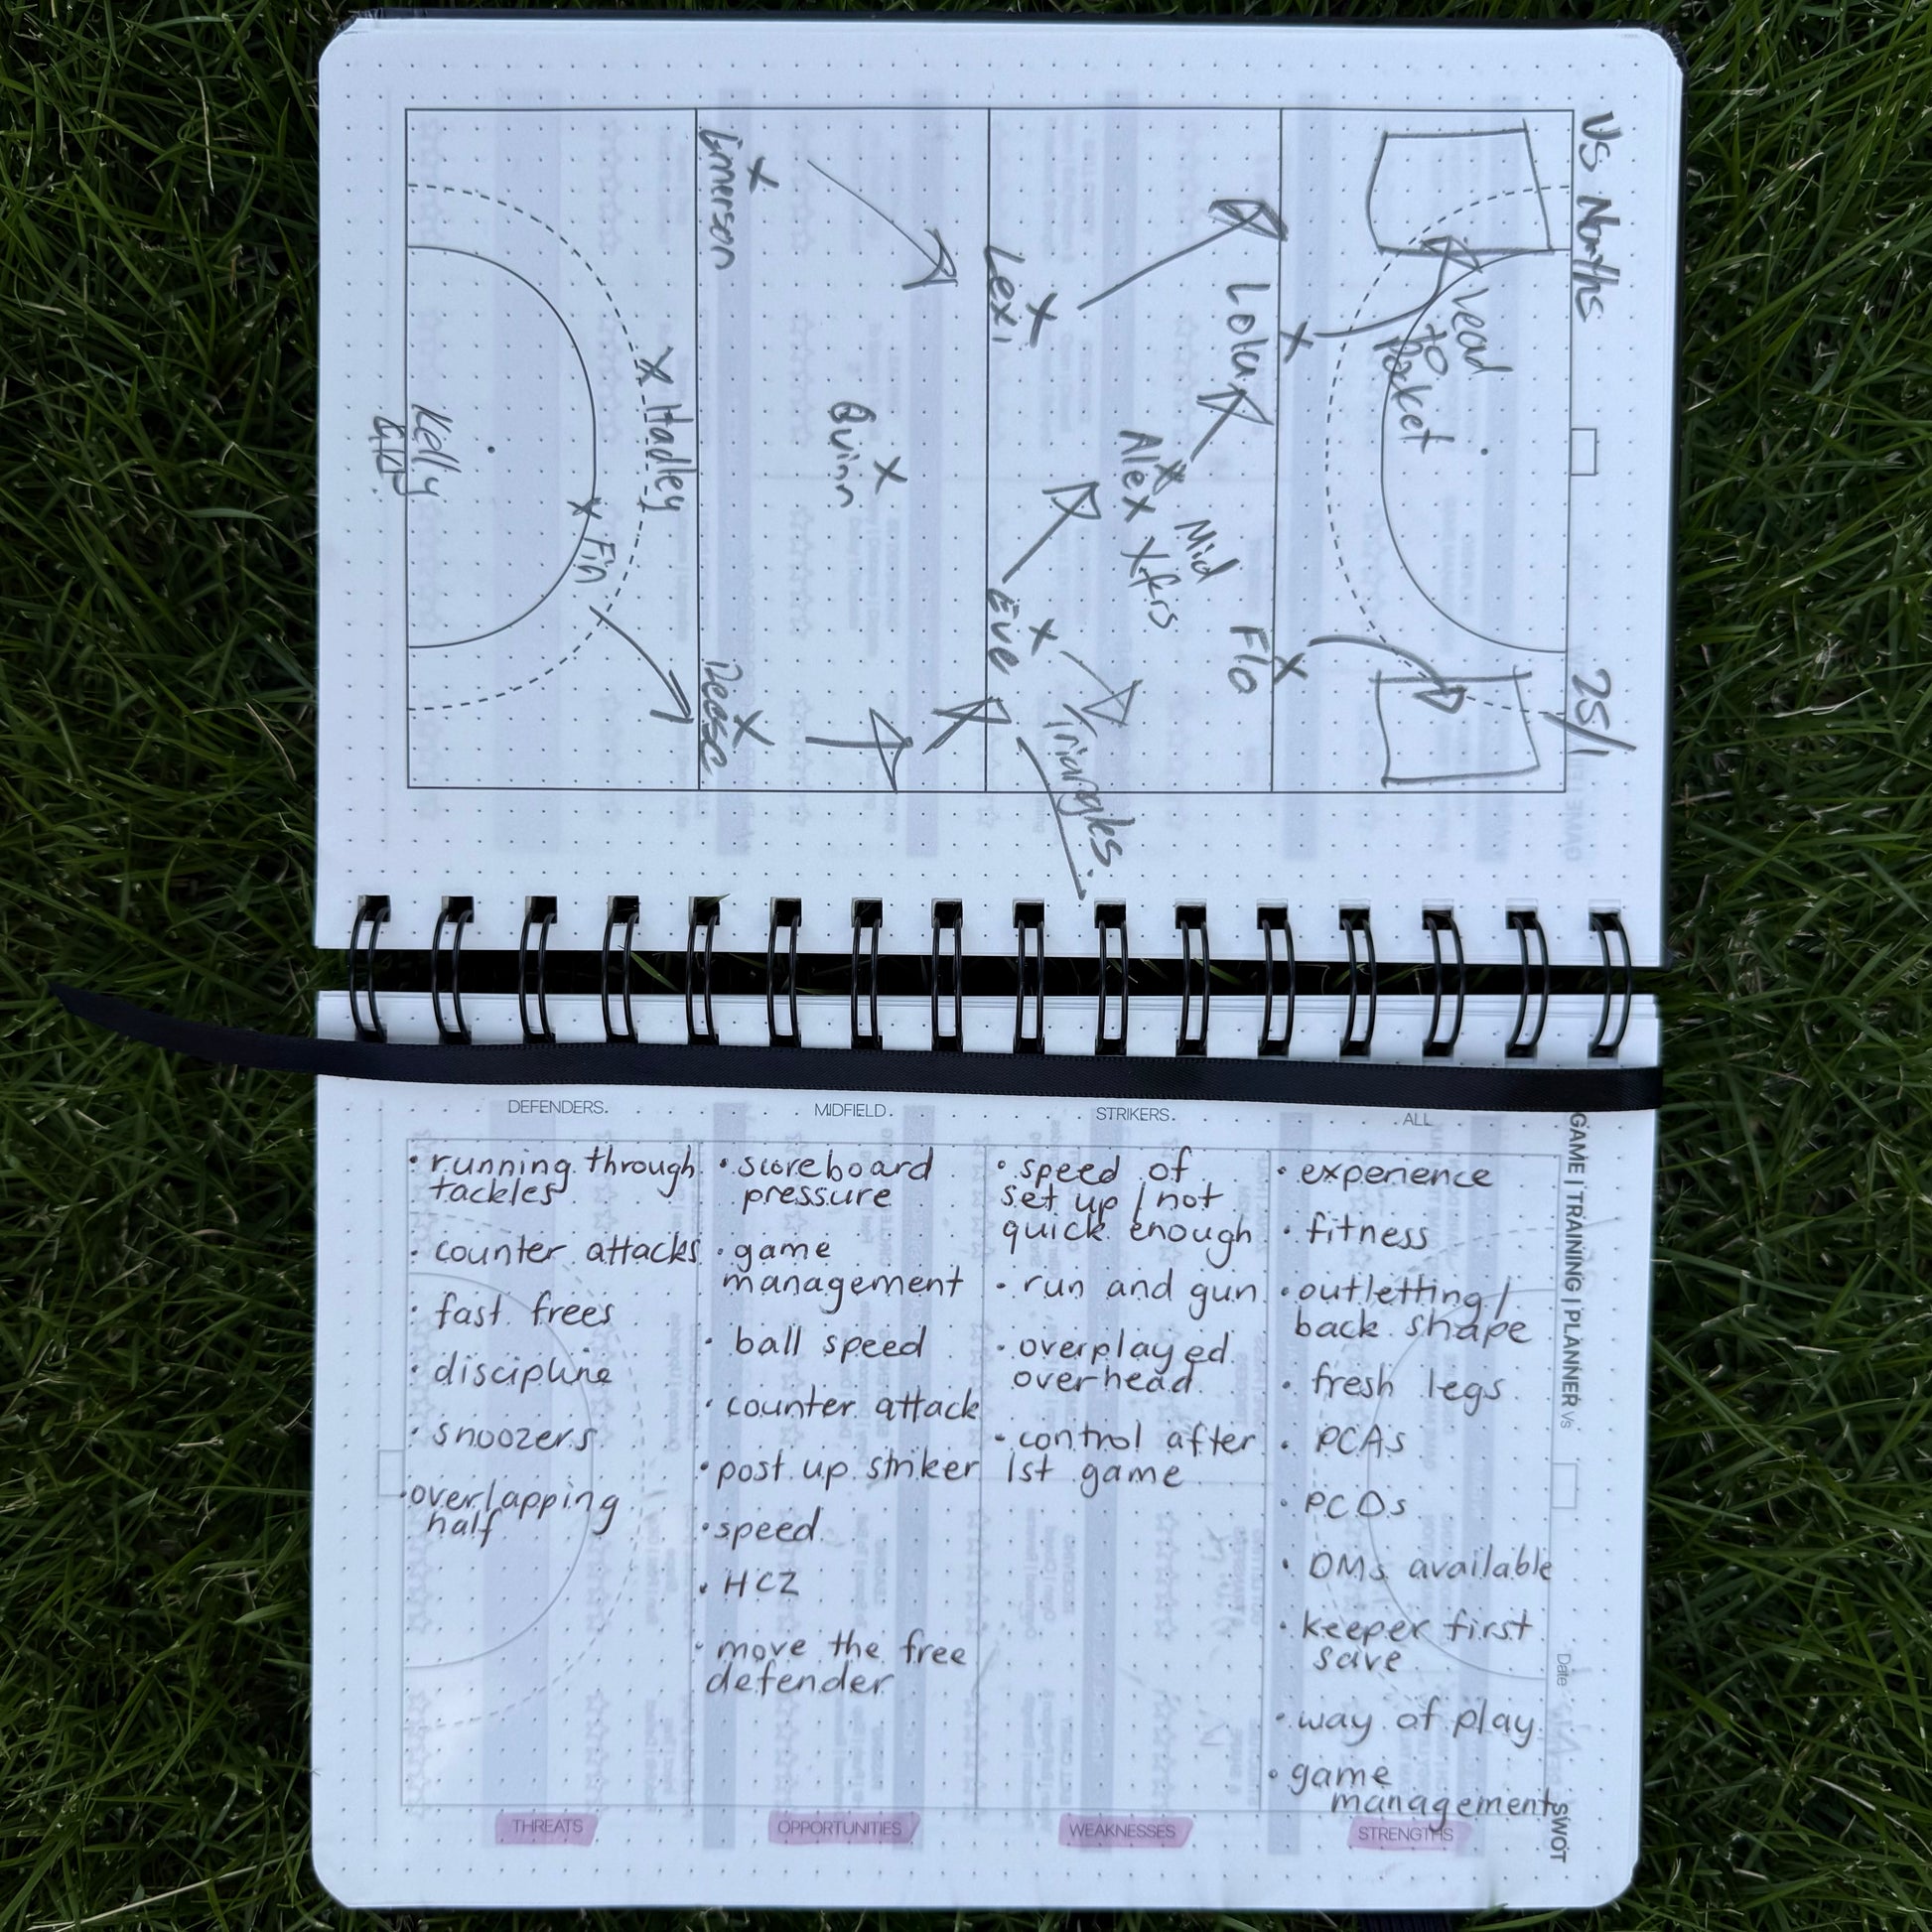 Vs Norths
25/1
Lead
to
Pocket
Lola
Flo
Mid
Xfrs
Alex
Lexi
Eve
Triangles.
Quinn
Emerson
Reese
Hadley
Fin
Kelly
GAME | TRAINING | PLANNER
Vs
Date
SWOT
DEFENDERS.
MIDFIELD.
STRIKERS.
ALL
• running through
tackles
• counter attacks
• fast frees
• discipline
• snoozers
• overlapping
half
THREATS
• scoreboard
pressure
• game
management
• ball speed
• counter attack
• post up striker
• speed
• HCZ
• move the free
defender
OPPORTUNITIES
• speed of
set up / not
quick enough
• run and gun
• overplayed
overhead
• control after
1st game
WEAKNESSES
• experience
• fitness
• outletting /
back shape
• fresh legs
• PCAs
• PCDs
• DMs available
• keeper first
save
• way of play
• game
management
STRENGTHS